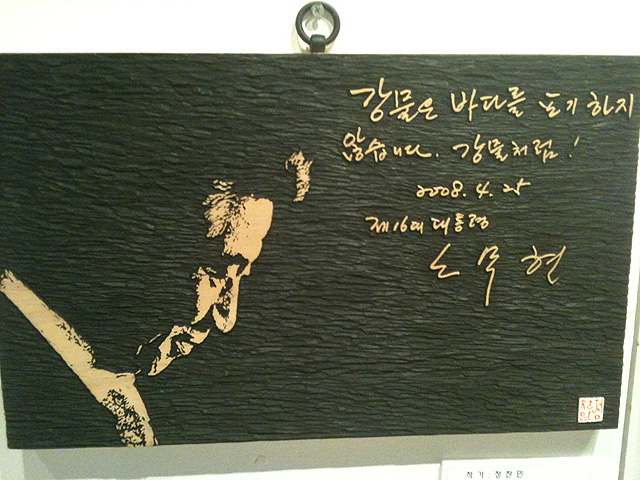 강물은 바다를 포기하지
않습니다. 강물처럼!
2008. 4. 25
제16대 대통령
노무현
작가 : 정찬민